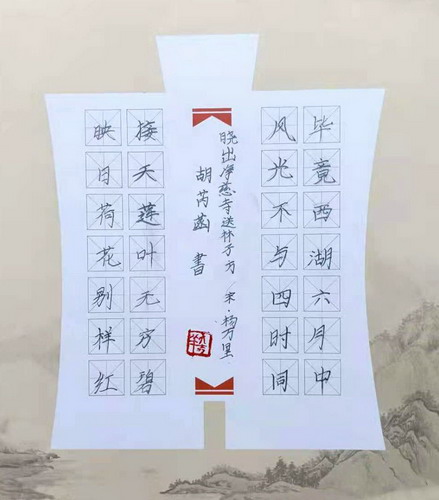 毕竟西湖六月中
风光不与四时同
晓出净慈寺送林子方 宋·杨万里
胡芮菡 書
接天莲叶无穷碧
映日荷花别样红